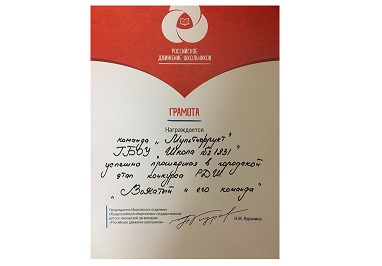 РОССИЙСКОЕ
ДВИЖЕНИЕ ШКОЛЬНИКОВ
ГРАМОТА
Награждается
команда „Мультифрукт"
ГБОУ „Школа № 1231"
успешно прошедшая в городской
этап конкурса РДШ
„Вожатый и его команда"
Председатель Московского отделения
Общероссийской общественно-государственной
детско-юношеской организации
«Российское движение школьников»